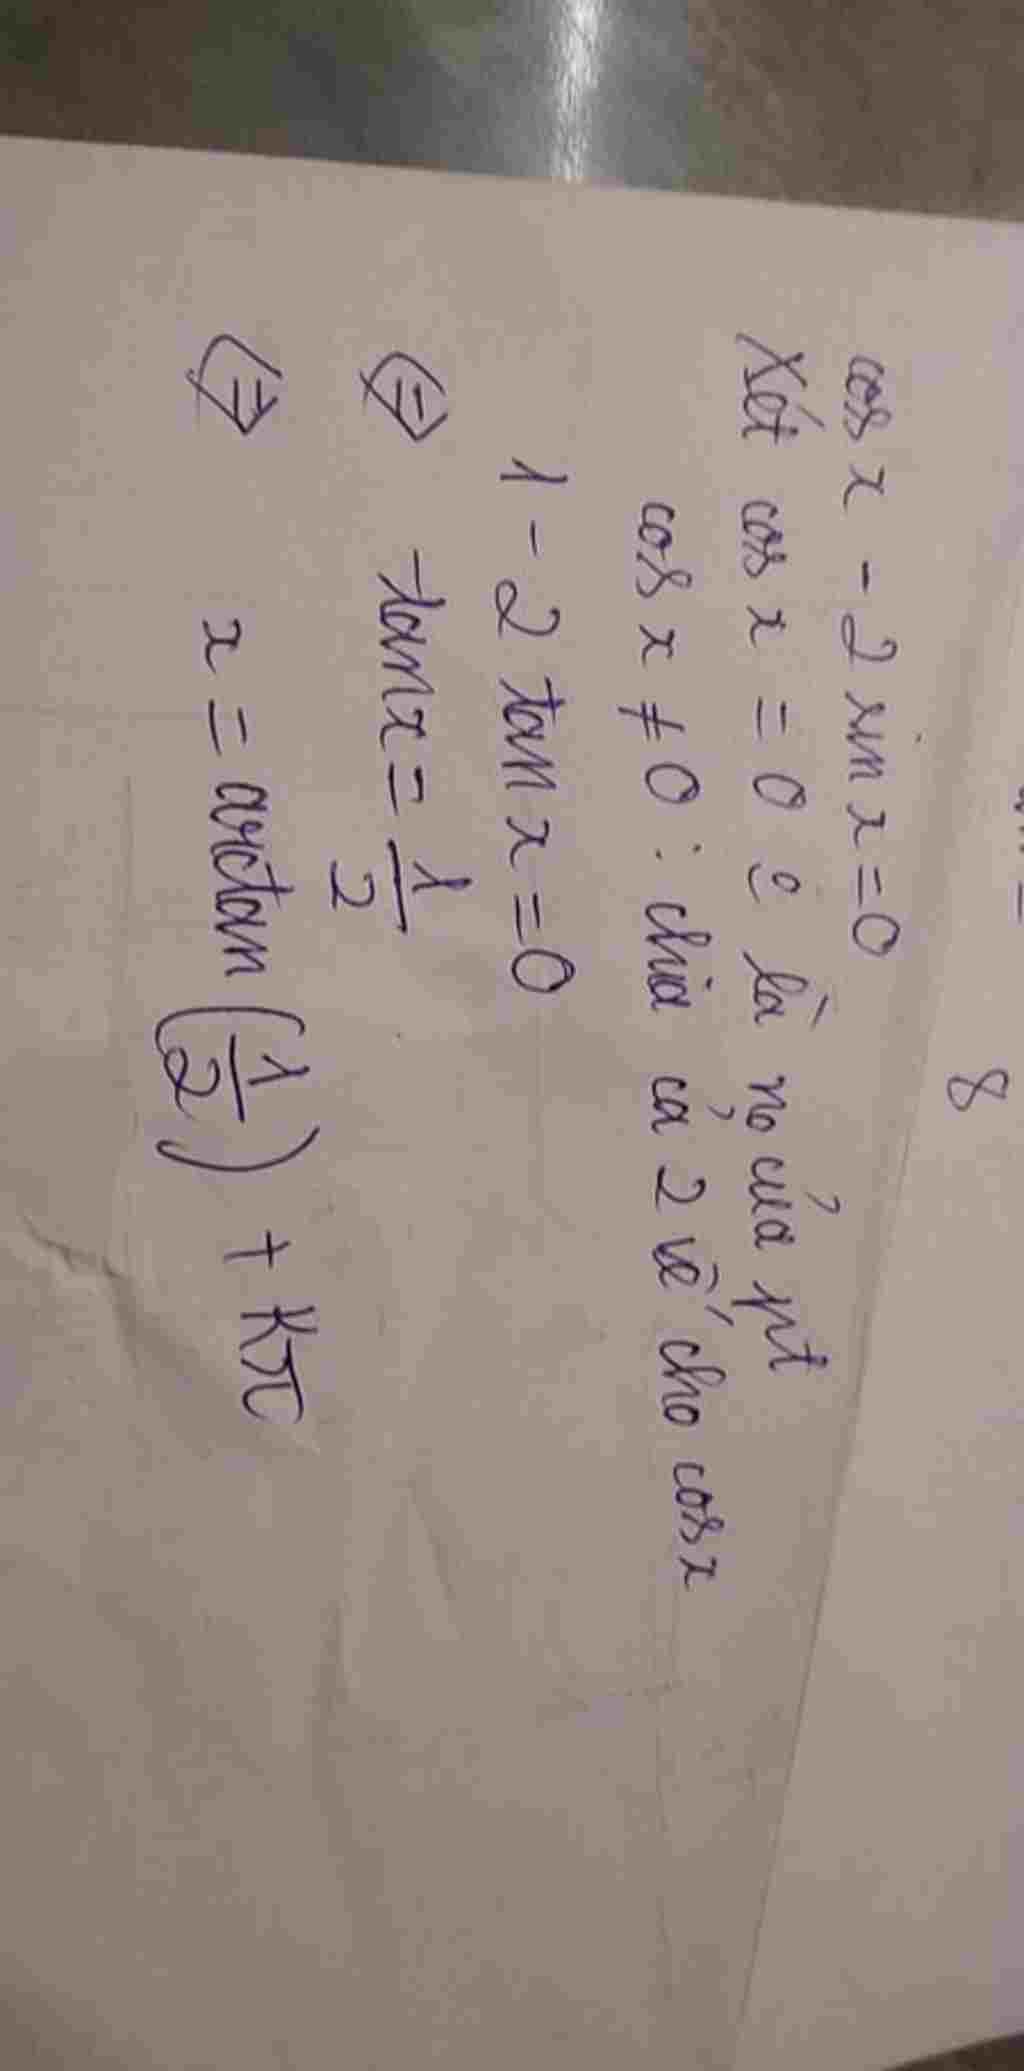 8
cos x - 2 sin x = 0
Xét cos x = 0 o là no của pt
cos x ≠ 0 : chia cả 2 vế cho cos x
1 - 2 tan x = 0
⇔ tan x = 1/2
⇔ x = arctan (1/2) + Kπ